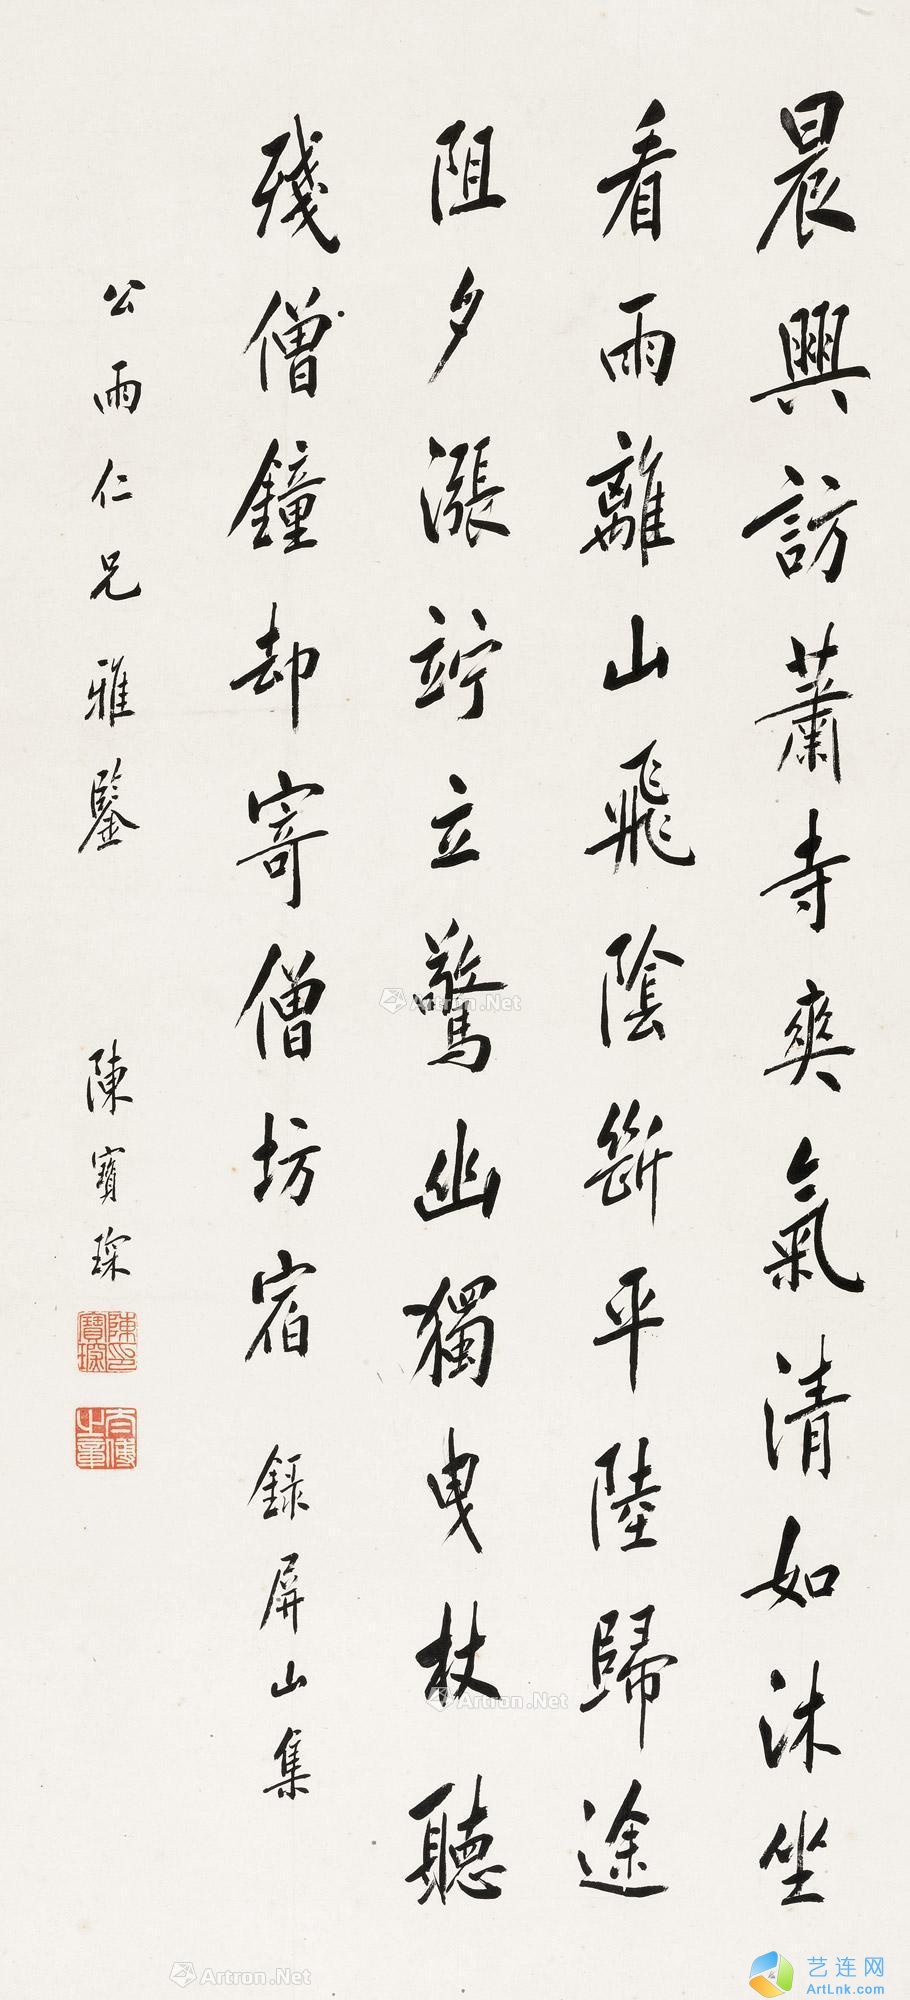 晨興訪蕭寺爽氣清如沐坐
看雨離山飛陰斷平陸歸途
阻夕漲竚立驚幽獨曳杖聽
殘僧鐘却寄僧坊宿 錄屏山集
公雨仁兄雅鑒 陳寶琛
陳寶琛印
太傅之章
Artron.Net
Artron.Net
Artron.Net
艺连网
ArtLnk.com